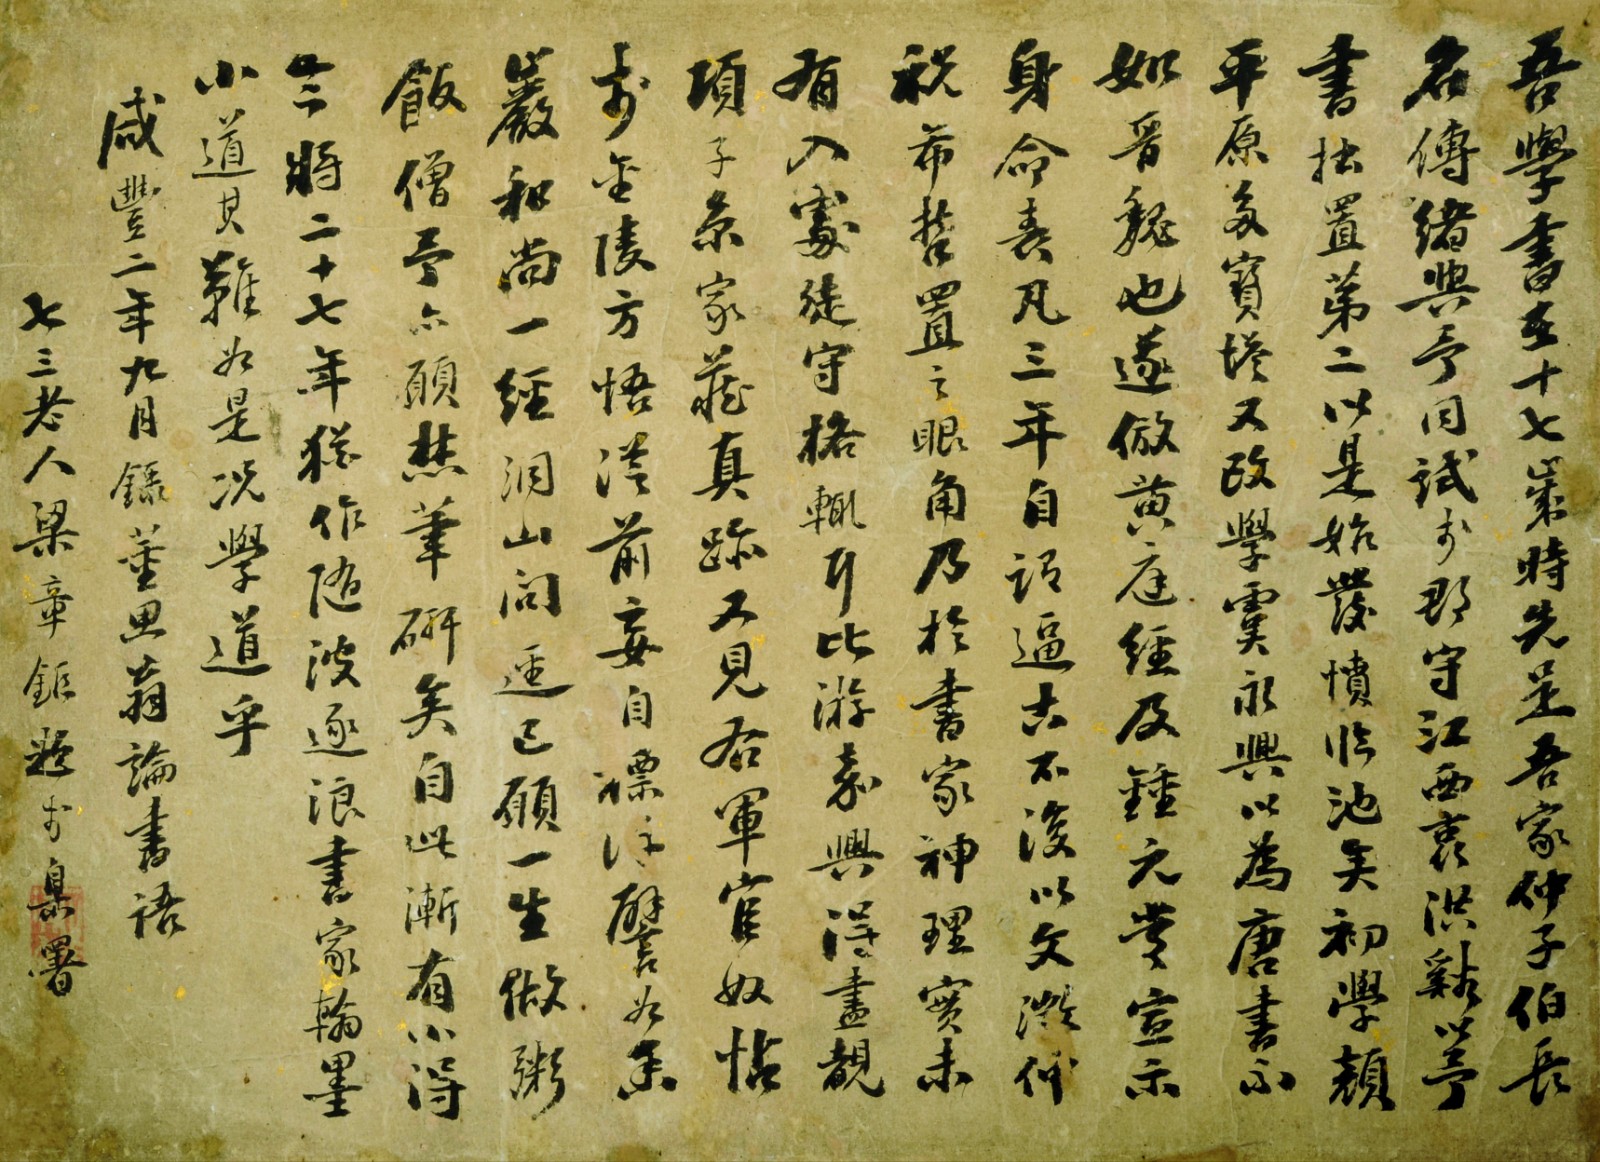 吾學書在十七歲時先是吾家仲子伯長
名傳緒與予同試於郡守江西袁洪谿以予
書拙置第二以是始發憤臨池矣初學顏
平原多寶塔又改學虞永興以為唐書不
如晉魏也遂倣黃庭經及鍾元常宣示
身命表凡三年自謂逼古不復以文徵仲
祝希哲置之眼角乃於書家神理實未
有入處徒守格輒耳比游嘉興得盡覩
項子京家藏真跡又見右軍官奴帖
於金陵方悟從前妄自標評譬如香
巖和尚一經洞山問逕已願一生做粥
飯僧予亦願焚筆研矣自此漸有小得
今將二十七年猶作隨波逐浪書家翰墨
小道其難如是況學道乎
咸豐二年九月錄董思翁論書語
七三老人梁章鉅題於臬署